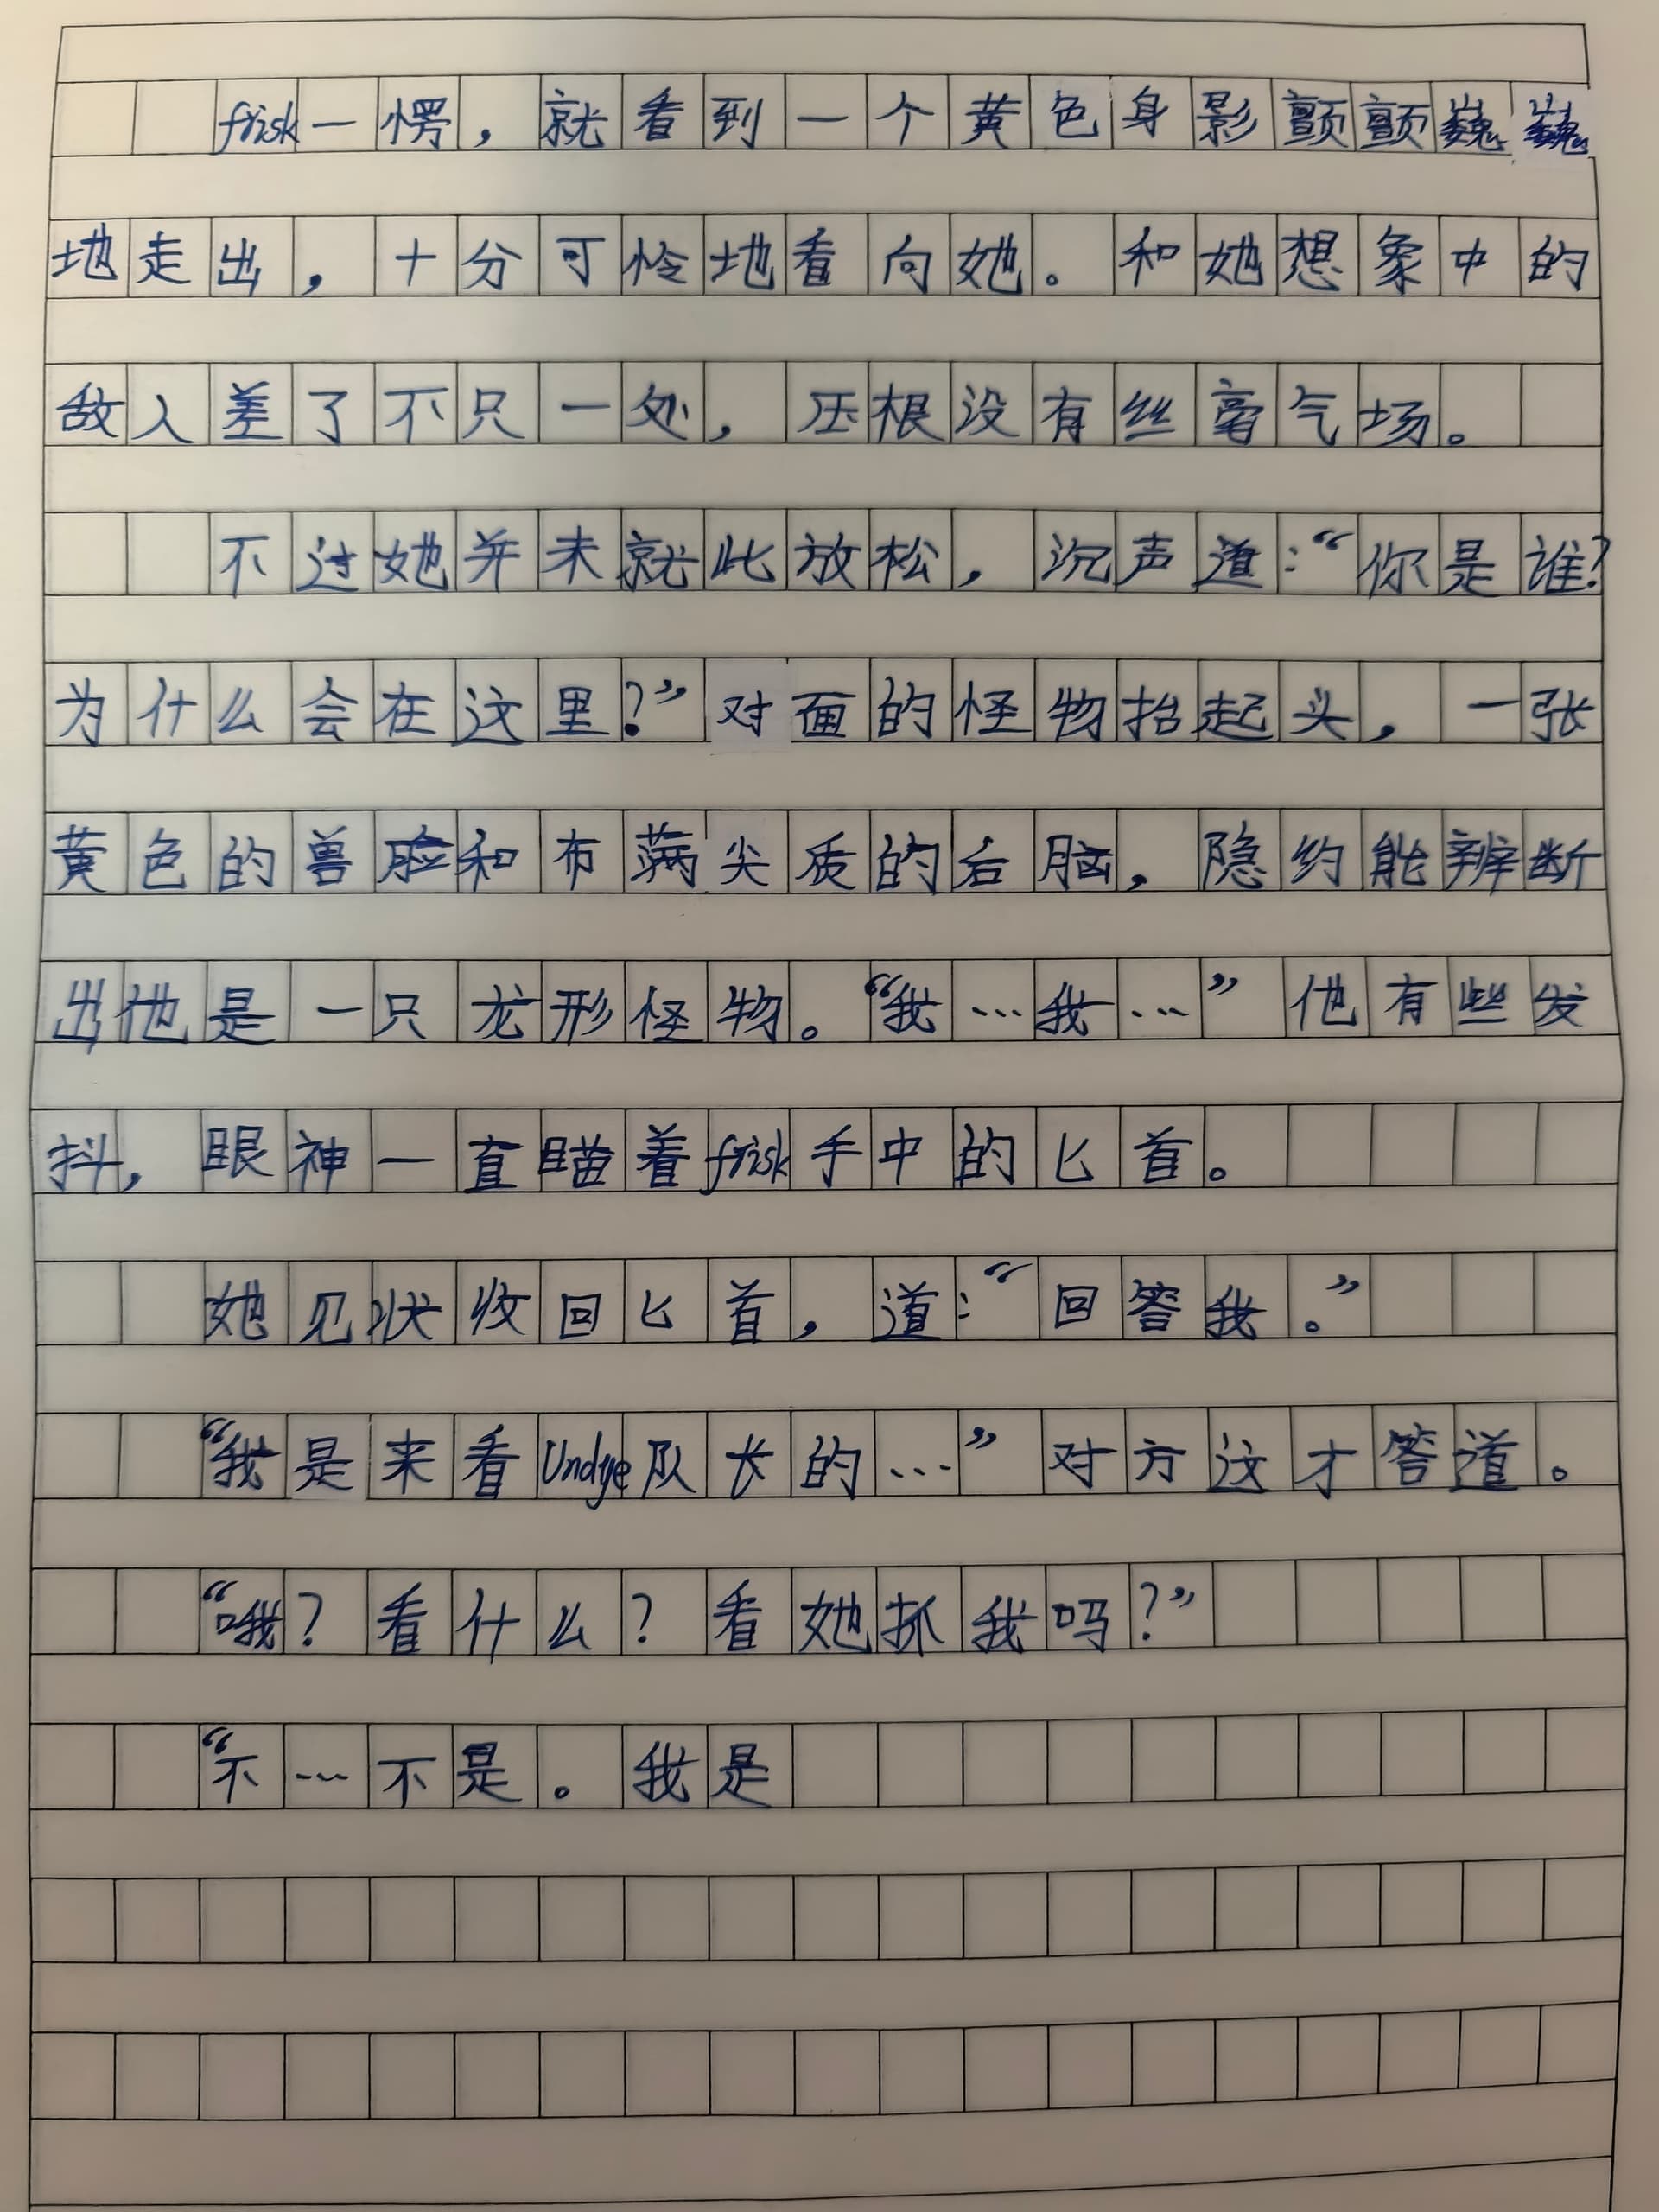 frisk一愣，就看到一个黄色身影颤颤巍巍
地走出，十分可怜地看向她。和她想象中的
敌人差了不只一处，压根没有丝毫气场。
不过她并未就此放松，沉声道：“你是谁？
为什么会在这里？”对面的怪物抬起头，一张
黄色的兽脸和布满尖质的后脑，隐约能辨断
出他是一只龙形怪物。“我…我…”他有些发
抖，眼神一直瞄着frisk手中的匕首。
她见状收回匕首，道：“回答我。”
“我是来看Undye队长的…”对方这才答道。
“哦？看什么？看她抓我吗？”
“不…不是。我是